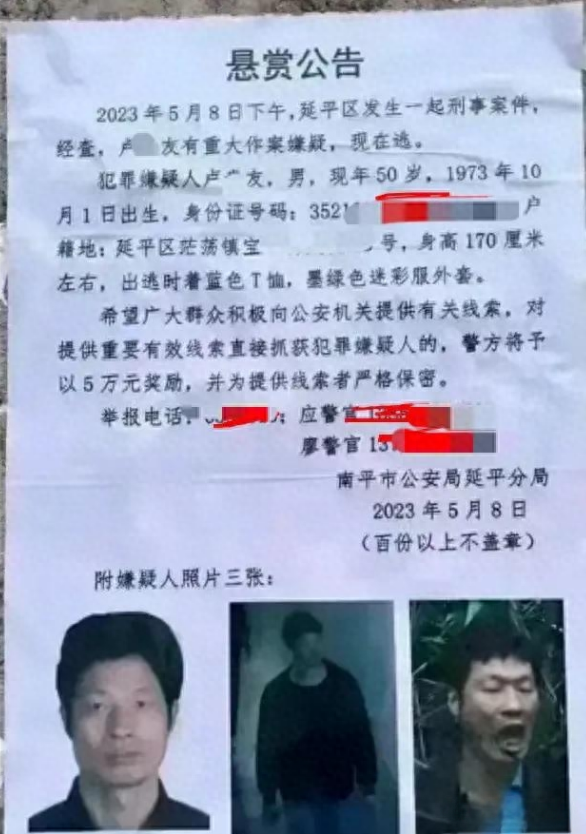 悬赏公告
2023年5月8日下午,延平区发生一起刑事案件,
经查,卢 友有重大作案嫌疑,现在逃。
犯罪嫌疑人卢 友,男,现年50岁,1973年10
月1日出生,身份证号码:3521 户
籍地:延平区茫荡镇宝 号,身高170厘米
左右,出逃时着蓝色T恤,墨绿色迷彩服外套。
希望广大群众积极向公安机关提供有关线索,对
提供重要有效线索直接抓获犯罪嫌疑人的,警方将予
以5万元奖励,并为提供线索者严格保密。
举报电话: ;应警官
廖警官 13
南平市公安局延平分局
2023年5月8日
(百份以上不盖章)
附嫌疑人照片三张: